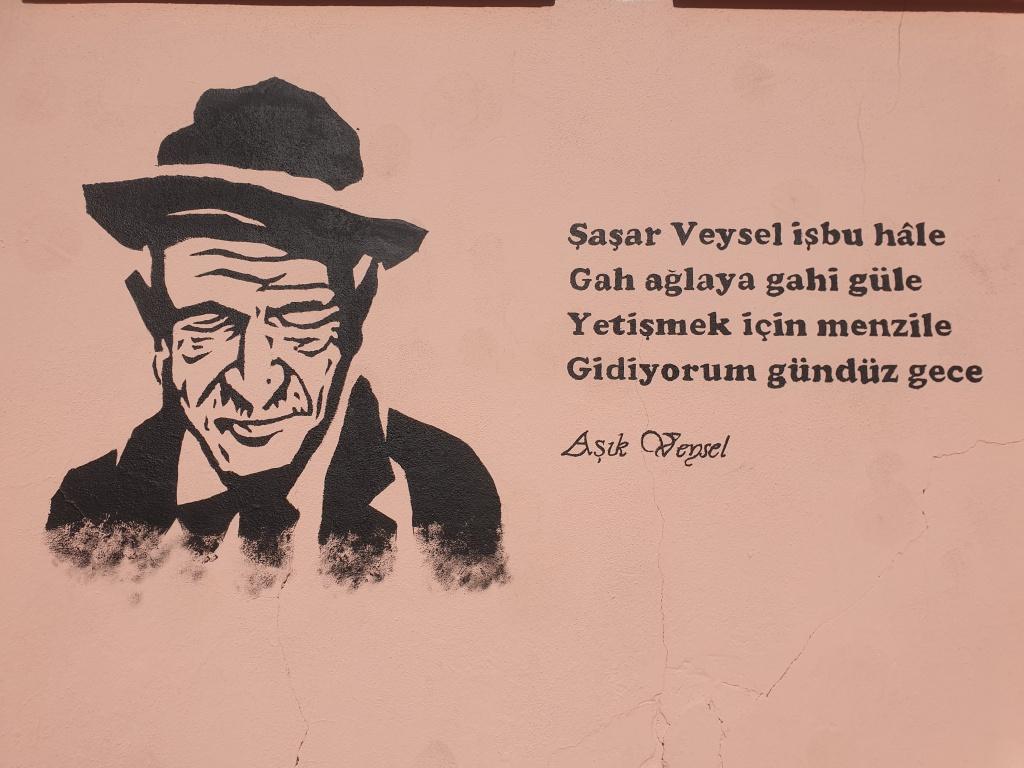 Şaşar Veysel işbu hâle
Gah ağlaya gahi güle
Yetişmek için menzile
Gidiyorum gündüz gece
Aşık Veysel